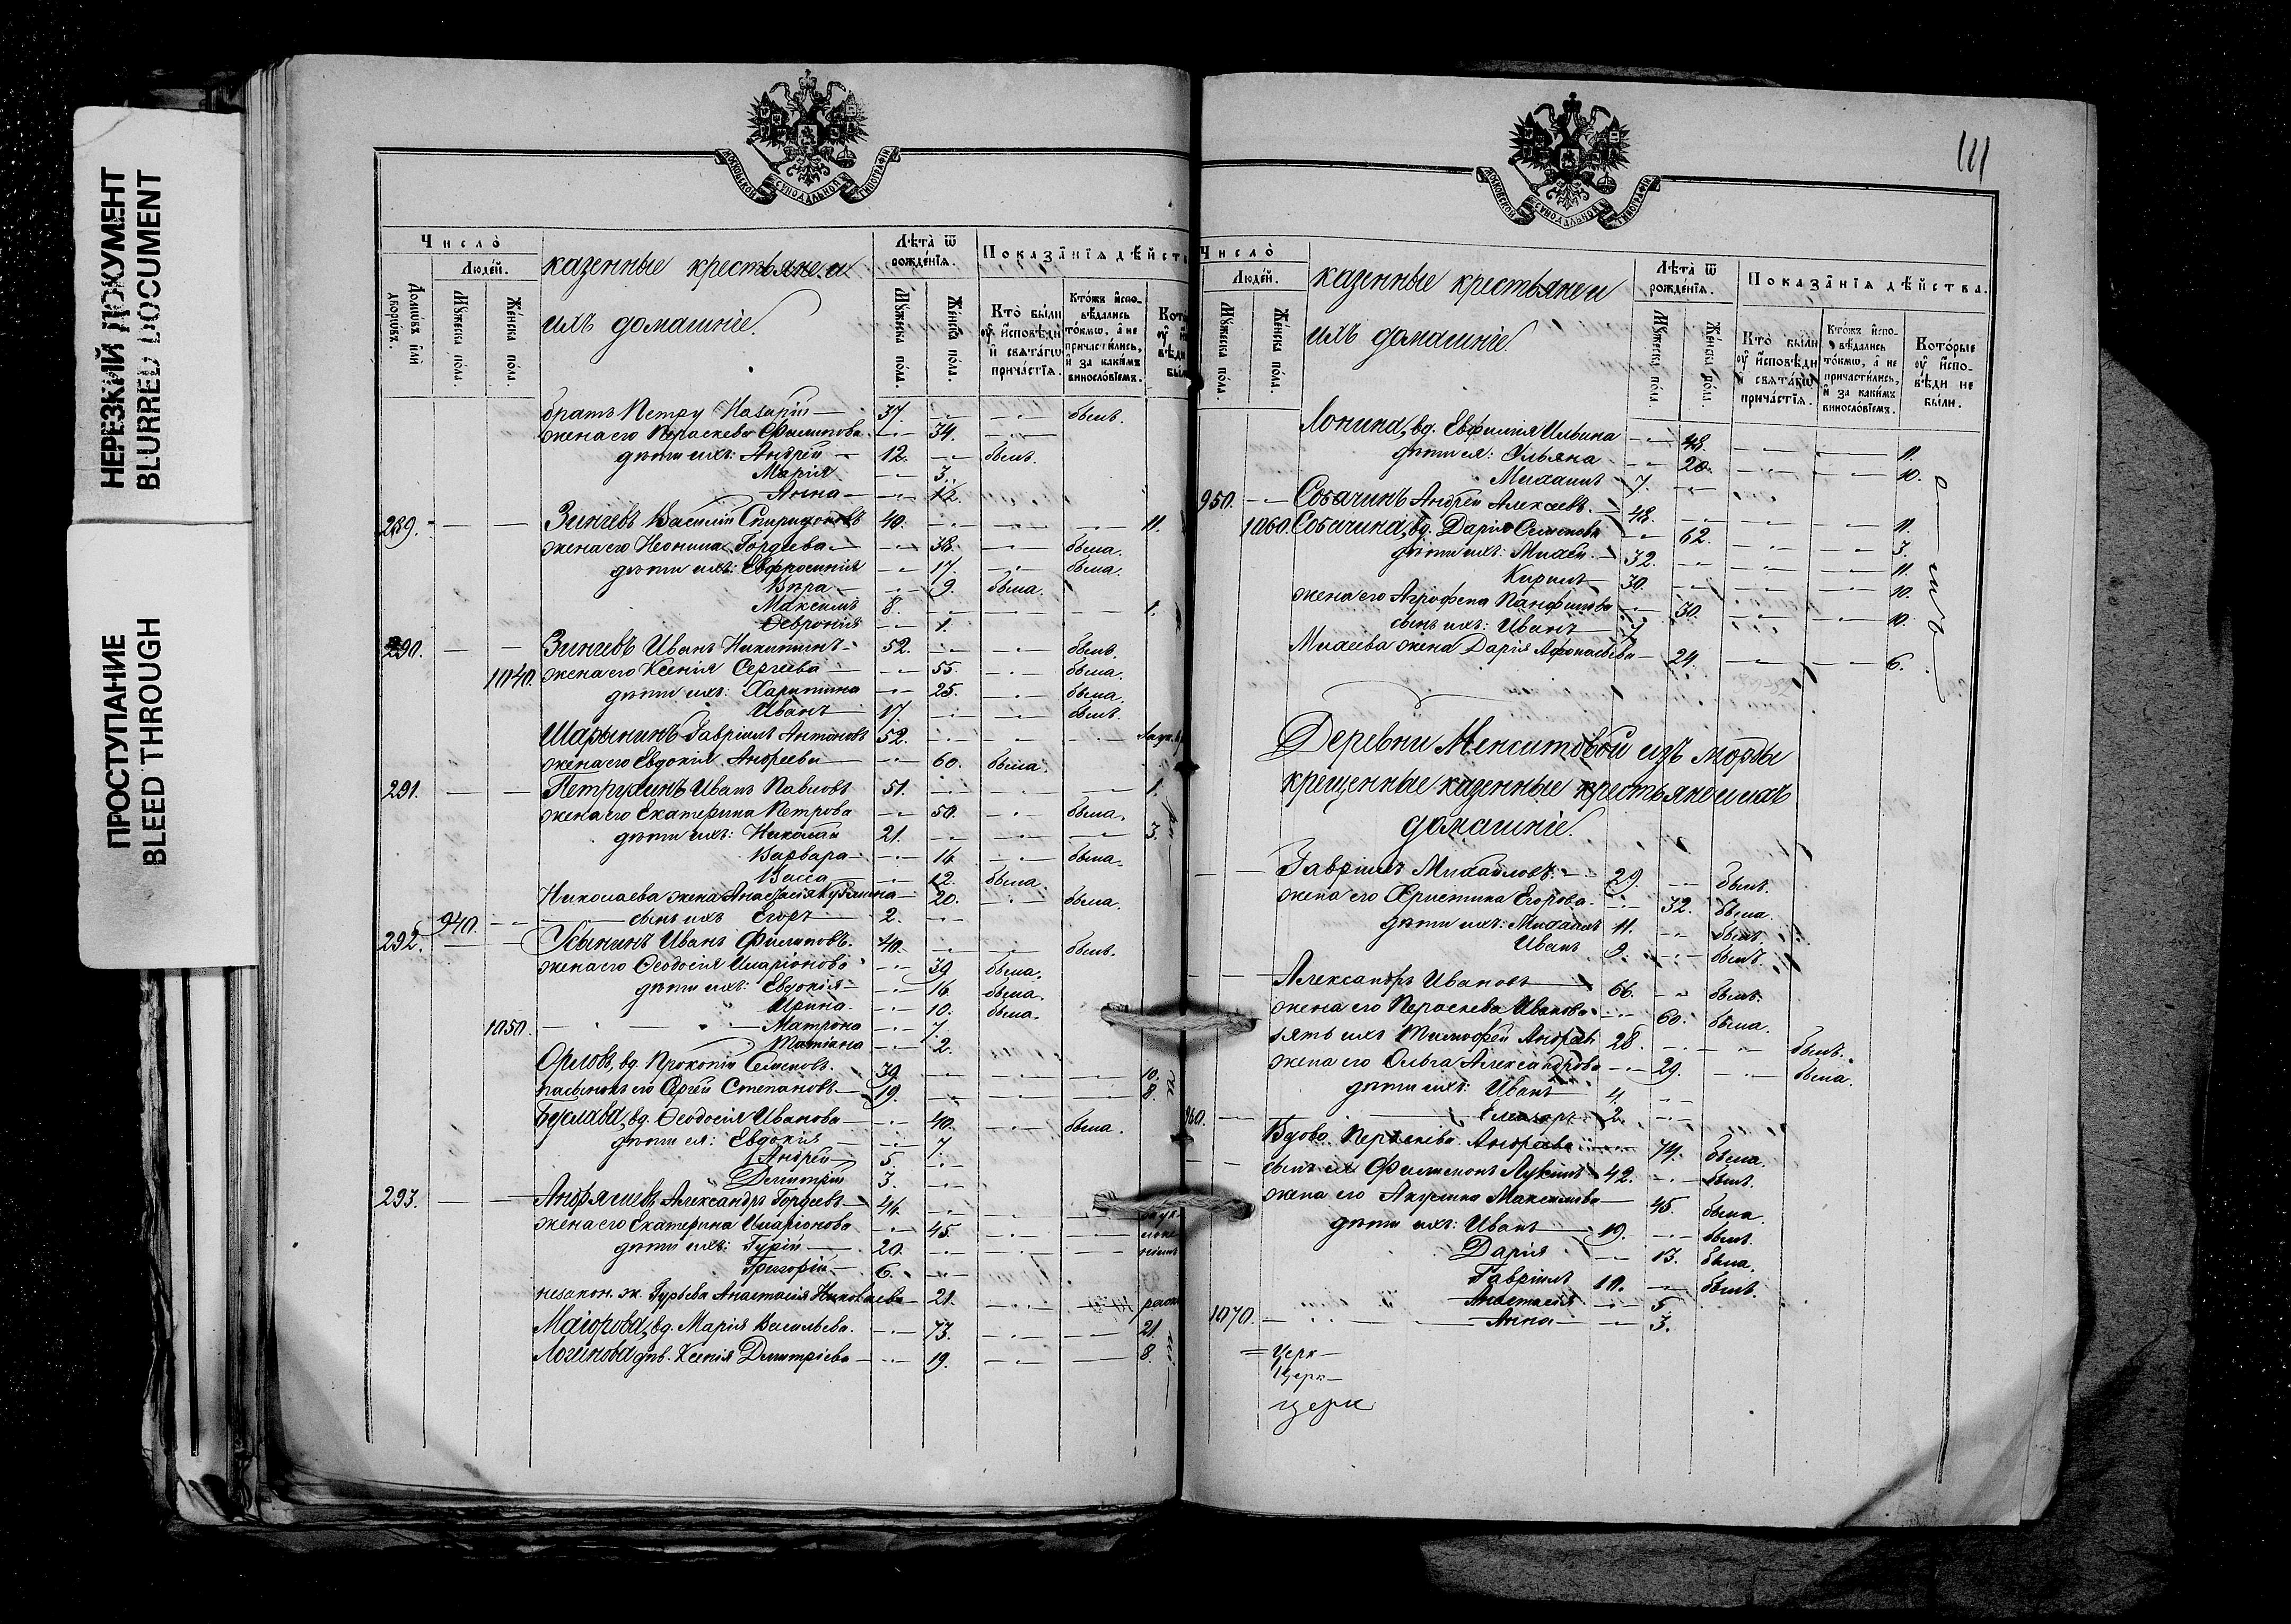 НЕРЕЗКИЙ ДОКУМЕНТ
BLURRED DOCUMENT
ПРОСТУПАНИЕ
BLEED THROUGH
МОСКОВСКОЙ СѴНОДАЛЬНОЙ ТИПОГРАФІИ
Число̀
Домѡ́въ и҆лѝ дворѡ́въ.
Люде́й.
Мꙋ́жеска по́ла.
Же́нска по́ла.
казенные крестьяне и
ихъ домашніе.
Лѣ́та ѿ рожде́нїѧ.
Мꙋ́жеска по́ла.
Же́нска по́ла.
Показа̑нїѧ дѣ́йст
Кто̀ бы́ли ᲂу҆ и҆сповѣ́ди и҆ свѧта́гѡ прича́стїѧ.
Кто́жъ и҆споⸯвѣ́дались то́кмѡ, а҆ не причасти́лись, и҆ за каки́мъ винослó­вїемъ.
братъ Петру Назарій — 37. — — былъ.
жена его Параскева Филипова — 34. —
дѣти ихъ: Андрей — 12. — былъ.
Марія — 3.
Анна — 12.
289. — — Зинчевъ Василій Спиридоновъ 40. — — — 11.
жена его Неонила Гордеева — 38. — была.
дѣти ихъ: Евфросинія — 17. — была.
Вѣра — 9. была.
Максимъ 8. — — — 1.
Февронія — 1.
290. — — Зинчевъ Иванъ Никитинъ 52. — — былъ.
1040. жена его Ксенія Сергеева — 55. — была.
дѣти ихъ: Харитина — 25. — была.
Иванъ — 17. — — былъ.
Шарынинъ Гавріилъ Антоновъ 52. — — —
жена его Евдокія Андреева — 60. была.
291. — — Петрухинъ Иванъ Павловъ 51. — — — 1.
жена его Екатерина Петрова — 50. — была.
дѣти ихъ: Николай 21. — — — 3.
Варвара — 16 — была.
Васса — 12. была.
Николаева жена Анастасія — 20. — была.
940. — сынъ ихъ Егоръ — 2. —
292. — — Усынинъ Иванъ Филиповъ. 40. — — былъ.
жена его Ѳеодосія Иларіонова — 39 была.
дѣти ихъ: Евдокія — 16. была.
Ирина — 10. была.
1050. — Матрона — 7.
Татіана — 2.
Орловъ, вд. Прокопій Семеновъ. 39. — — — 10.
пасынокъ его Сергей Степановъ — 19. — — — 8.
вд. Ѳеодосія Иванова — 40. — была.
дѣти ея: Евдокія — 7.
Андрей — 5. —
Димитрій 3. —
293. — — Александръ Гордеевъ — 46. —
жена его Екатерина Иларіонова — 45. —
дѣти ихъ: Гурій — 20. —
Григорій — 6. —
незакон. ж. Гурьева Анастасія Николаева — 21. —
Маіорова, вд. Марія Васильева. — 73. — — 21.
Логинова дѣв. Ксенія Димитріева — 19. — — 8.
111
МОСКОВСКОЙ СѴНОДАЛЬНОЙ ТИПОГРАФІИ
Число̀
Люде́й.
Мꙋ́жеска по́ла.
Же́нска по́ла.
казенные крестьяне и
ихъ домашніе.
Лѣ́та ѿ рожде́нїѧ.
Мꙋ́жеска по́ла.
Же́нска по́ла.
Показа̑нїѧ дѣ́йства.
Кто̀ бы́ли ᲂу҆ и҆сповѣ́ди и҆ свѧта́гѡ прича́стїѧ.
Кто́жъ и҆споⸯвѣ́дались то́кмѡ, а҆ не причасти́лись, и҆ за каки́мъ винослó­вїемъ.
Кото́рые ᲂу҆ и҆сповѣ́ди не бы́ли.
Лонина, вд. Евфимія Ильина — 48. — — 11.
дѣти ея: Ульяна — 20. — — 10.
Михаилъ 7. —
950. — Собачинъ Андрей Алексеевъ — 48. — — — 11.
1060. Собачина, вд. Дарія Семенова — 62. — — 3.
дѣти ихъ: Михей — 32. — — — 11.
Кирилъ — 30. — — — 10.
жена его Агрофена Панфилова — 30. — — 10.
сынъ ихъ: Иванъ — 7
Михеева жена Дарія Афонасьева — 24. — — 6.
Деревни Менситовой изъ мордвы
крещенные казенные крестьяне и ихъ
домашніе.
— — Гавріилъ Михайловъ — 29. — былъ.
жена его Христина Егорова — 32. была.
дѣти ихъ: Михаилъ 11. — былъ.
Иванъ 9. — былъ.
— — Александръ Ивановъ — 66. — былъ.
жена его Параскева Иванова — 60. была.
зять ихъ Тимофей Андреевъ 28. — — былъ.
жена его Ольга Александрова — 29. — была.
дѣти ихъ: Иванъ 4. —
960. — Елеазаръ 2. —
Вдова Параскева Андреева — 74. была.
сынъ ея Филимонъ Лукинъ 42. — былъ.
жена его Акулина Максимова — 45. была.
дѣти ихъ: Иванъ — 19. — былъ.
Дарія — 13. была.
Гавріилъ 10. — былъ.
Анастасія — 5.
1070. — Анна — 3.
= Церк —
Церк —
церк